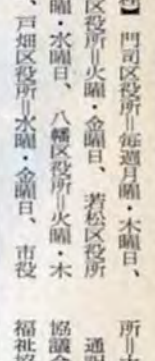 】門司区役所＝毎週月曜・木曜日、
区役所＝火曜・金曜日、若松区役所
曜・水曜日、八幡区役所＝火曜・木
、戸畑区役所＝水曜・金曜日、市役
所＝
通
協議会
福祉協